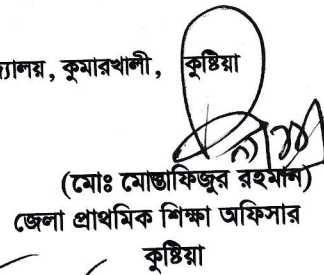 ্যালয়, কুমারখালী, কুষ্টিয়া
(মোঃ মোস্তাফিজুর রহমান)
জেলা প্রাথমিক শিক্ষা অফিসার
কুষ্টিয়া